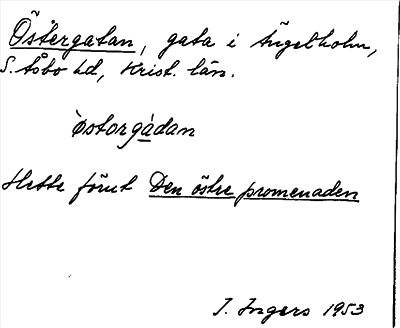 Östergatan, gata i Ängelholm,
S. Åsbo hd, Krist. län.
òstorgádan
Hette förut Den östre promenaden
I. Ingers 1953